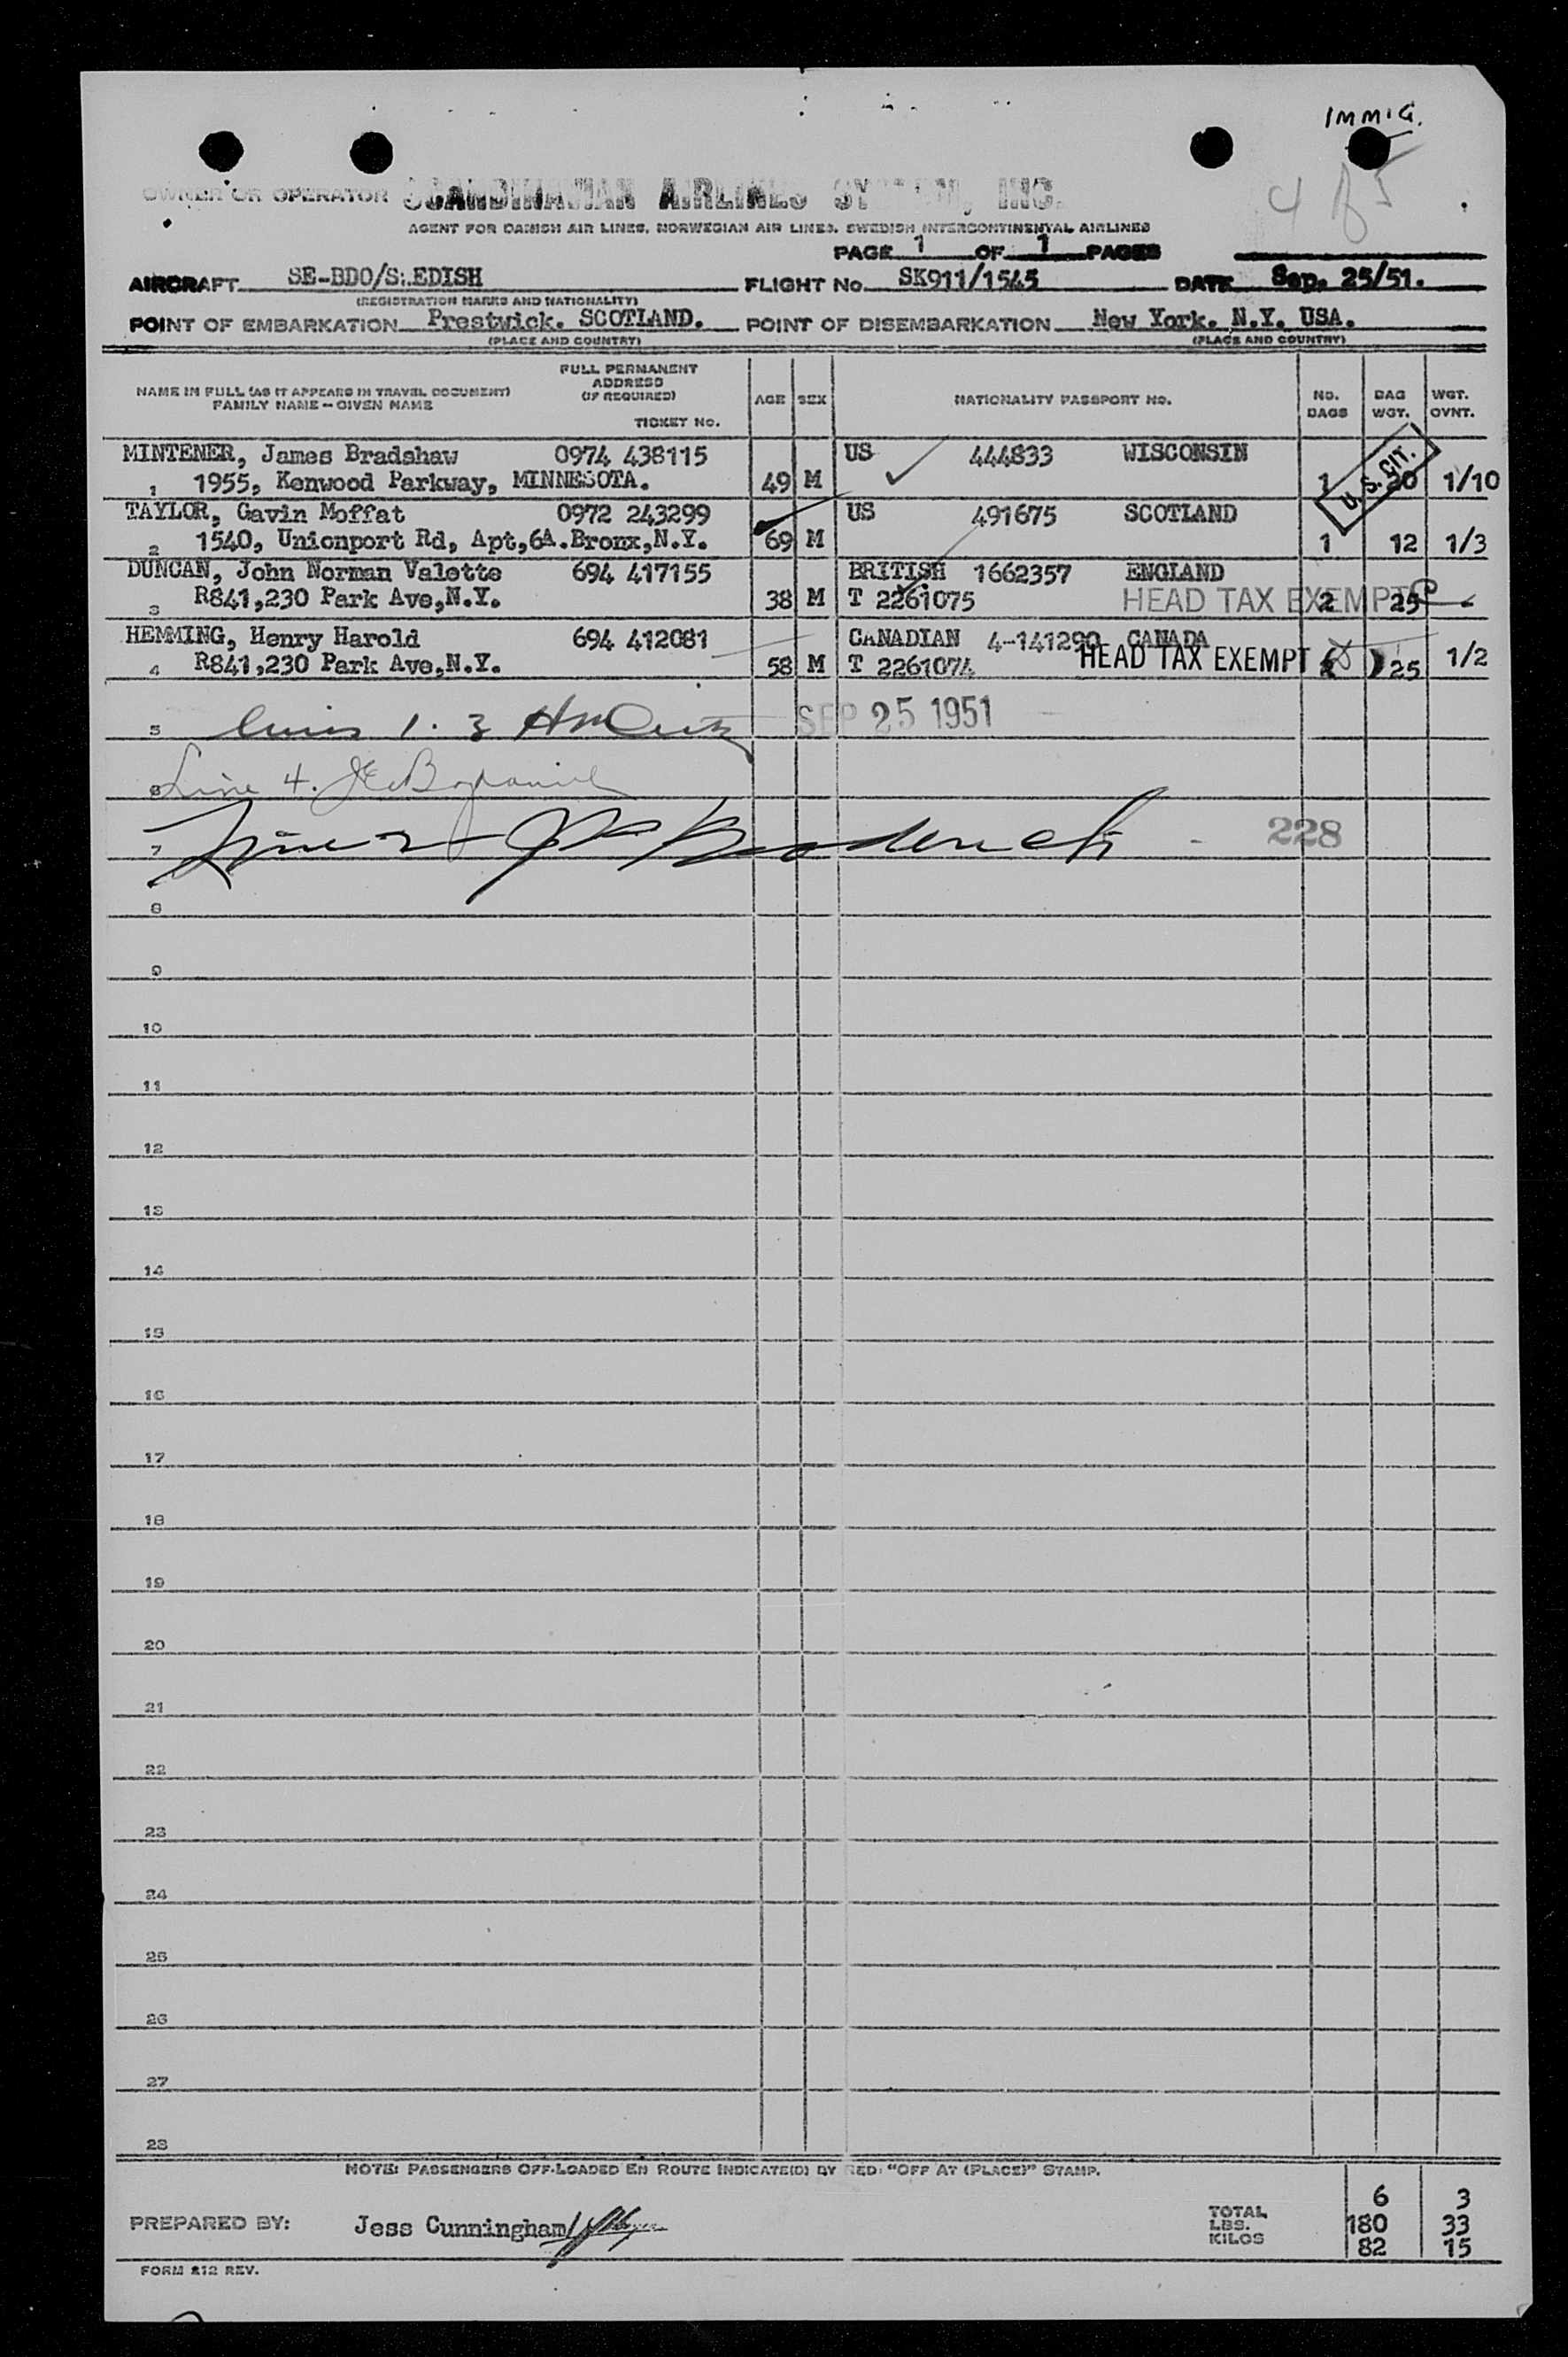 IMMIG.
485
OWNER OR OPERATOR SCANDINAVIAN AIRLINES SYSTEM, INC.
AGENT FOR DANISH AIR LINES, NORWEGIAN AIR LINES, SWEDISH INTERCONTINENTAL AIRLINES
PAGE 1 OF 1 PAGES
AIRCRAFT SE-BDO/S.EDISH FLIGHT No. SK911/1545 DATE Sep. 25/51.
(REGISTRATION MARKS AND NATIONALITY)
POINT OF EMBARKATION Prestwick. SCOTLAND. POINT OF DISEMBARKATION New York. N.Y. USA.
(PLACE AND COUNTRY) (PLACE AND COUNTRY)
NAME IN FULL (AS IT APPEARS IN TRAVEL DOCUMENT) FAMILY NAME - GIVEN NAME FULL PERMANENT ADDRESS (IF REQUIRED) TICKET No. AGE SEX NATIONALITY PASSPORT NO. NO. BAGS BAG WGT. WGT. OVNT.
MINTENER, James Bradshaw 0974 438115 US 444833 WISCONSIN
1 1955, Kenwood Parkway, MINNESOTA. 49 M 1 20 1/10
U.S. CIT.
TAYLOR, Gavin Moffat 0972 243299 US 491675 SCOTLAND
2 1540, Unionport Rd, Apt,6A.Bronx,N.Y. 69 M 1 12 1/3
DUNCAN, John Norman Valette 694 417155 BRITISH 1662357 ENGLAND
3 R841,230 Park Ave,N.Y. 38 M T 2261075 HEAD TAX EXEMPT 2 25 -
HEMMING, Henry Harold 694 412081 CANADIAN 4-141290 CANADA
4 R841,230 Park Ave,N.Y. 58 M T 2261074 HEAD TAX EXEMPT 25 1/2
5 1. 3 SEP 25 1951
6 Line 4.
7 228
8
9
10
11
12
13
14
15
16
17
18
19
20
21
22
23
24
25
26
27
28
NOTE: PASSENGERS OFF-LOADED EN ROUTE INDICATE(D) BY RED: "OFF AT (PLACE)" STAMP.
6 3
PREPARED BY: Jess Cunningham TOTAL LBS. 180 33
KILOS 82 15
FORM 212 REV.